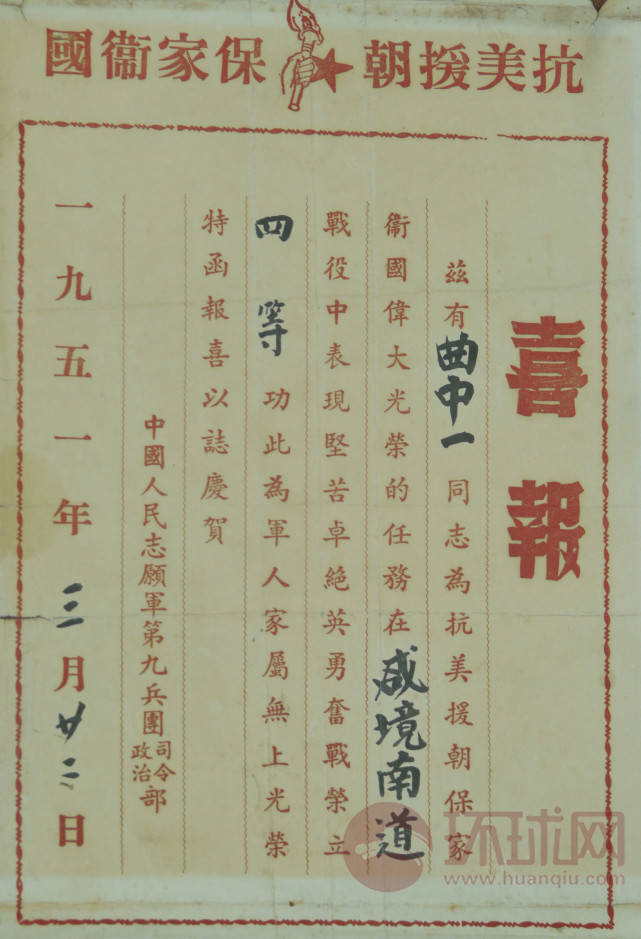 抗美援朝 保家衞國
喜報
茲有曲中一同志為抗美援朝保家
衞國偉大光榮的任務在咸境南道
戰役中表現堅苦卓絕英勇奮戰榮立
四等功此為軍人家屬無上光榮
特函報喜以誌慶賀
中國人民志願軍第九兵團司令政治部
一九五一年三月廿二日
环球网
www.huanqiu.com